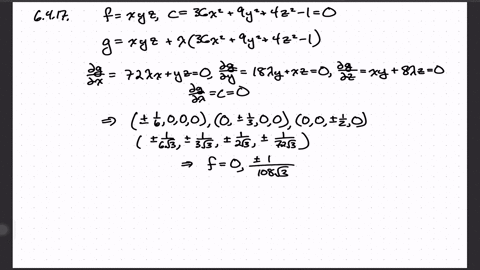 6.4.17. f = xyz, c = 36x² + 9y² + 4z² - 1 = 0
g = xyz + λ(36x² + 9y² + 4z² - 1)
∂g/∂x = 72λx + yz = 0, ∂g/∂y = 18λy + xz = 0, ∂g/∂z = xy + 8λz = 0
∂g/∂λ = c = 0
⇒ (± 1/6, 0, 0, 0), (0, ± 1/3, 0, 0), (0, 0, ± 1/2, 0)
(± 1/6√3, ± 1/3√3, ± 1/2√3, ± 1/72√3)
⇒ f = 0, ±1/108√3